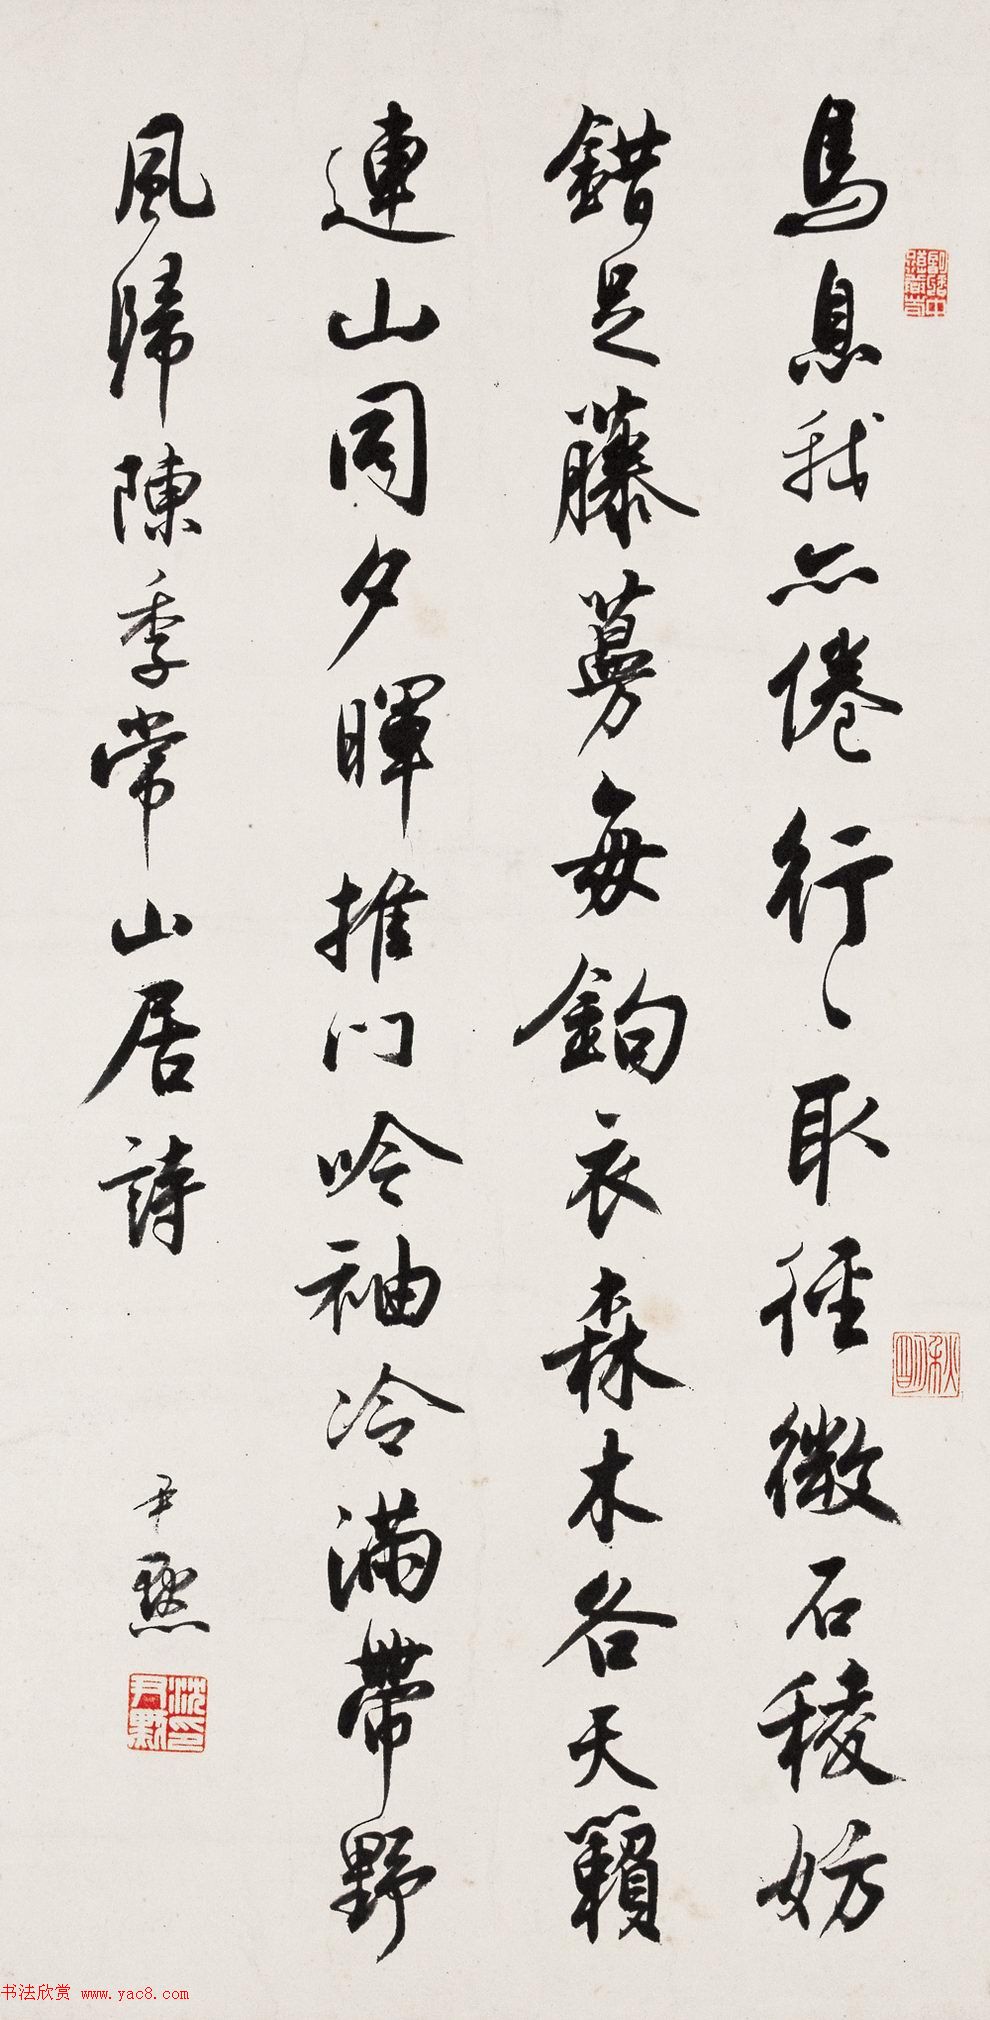 馬息我亦倦行行取徑微石稜妨
錯足藤蔓每鉤衣森木各天籟
連山同夕暉推門吟袖冷滿帶野
風歸陳季常山居詩
尹默
沈尹默印
秋明
书法欣赏 www.yac8.com